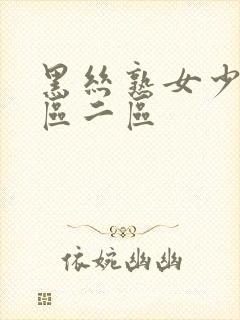 黑丝熟女少
區二區
依婉幽幽